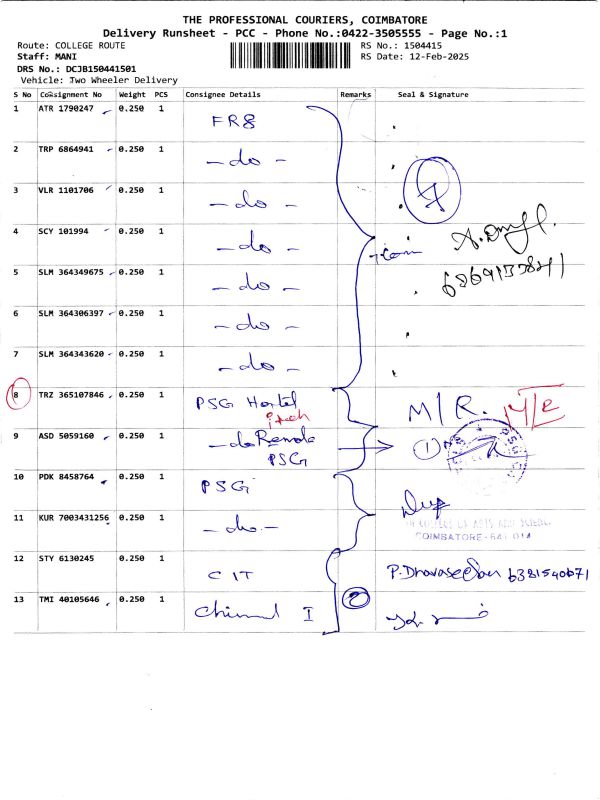 THE PROFESSIONAL COURIERS, COIMBATORE
Delivery Runsheet - PCC - Phone No.:0422-3505555 - Page No.:1
Route: COLLEGE ROUTE RS No.: 1504415
Staff: MANI RS Date: 12-Feb-2025
DRS No.: DCJB150441501
Vehicle: Two Wheeler Delivery
S No Consignment No Weight PCS Consignee Details Remarks Seal & Signature
1 ATR 1790247 0.250 1 FR8
2 TRP 6864941 0.250 1 -do-
3 VLR 1101706 0.250 1 -do-
4 SCY 101994 0.250 1 -do-
5 SLM 364349675 0.250 1 -do-
6 SLM 364306397 0.250 1 -do-
7 SLM 364343620 0.250 1 -do-
8 TRZ 365107846 0.250 1 PSG Hostel M/R. M/R
9 ASD 5059160 0.250 1 -do- 1
PSG
10 PDK 8458764 0.250 1 PSG
11 KUR 7003431256 0.250 1 -do-
COLLEGE OF ARTS AND SCIENCE
COIMBATORE-641 014
12 STY 6130245 0.250 1 CIT 6381540671
13 TMI 40105646 0.250 1 I 2